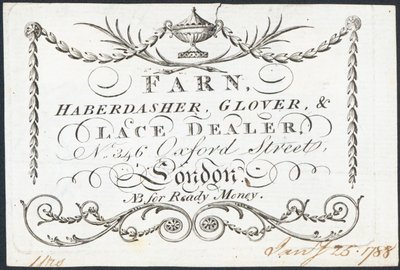 FARN,
HABERDASHER, GLOVER, &
LACE DEALER,
No. 346 Oxford Street,
London.
NB for Ready Money.
Jany 25. 1788